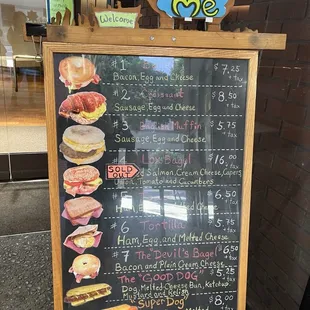 Welcome
Me
#1 $7.25
Bacon, Egg and Cheese + tax
#2 Croissant $8.50
Sausage, Egg and Cheese + tax
#3 Muffin $5.75
Sausage, Egg and Cheese + tax
#4 Lox Bagel $16.00
SOLD OUT Salmon, Cream Cheese, Capers + tax
Onion, Tomato and Cucumbers
$6.50
Ham and Melted Cheese + tax
#6 Tortilla $5.75
Ham, Egg and Melted Cheese + tax
#7 The Devil's Bagel $6.50
Bacon and Plain Cream Cheese + tax
The "GOOD DOG" $5.25
Dog, Melted Cheese, Bun, Ketchup + tax
Mustard and Relish
Super Dog $8.00
Melted + tax